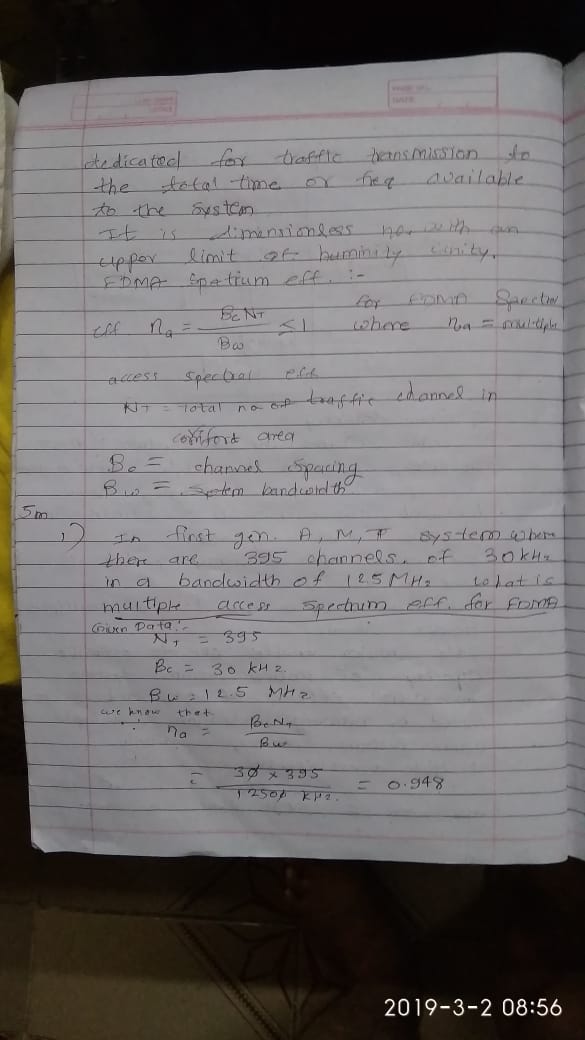 dedicated for traffic transmission to
the total time or freq available
to the system
It is dimensionless no. with an
upper limit of unity.
FDMA Spetrum eff. :-
for FDMA Spectru
eff ηa = BcNT / Bω ≤ 1 where ηa = multiple
access spectral eff
NT = Total no of traffic channel in
area
Bc = channel spacing
Bω = System bandwidth
5m
1) In first gen. A, M, P system where
there are 395 channels. of 30 kHz
in a bandwidth of 12.5 MHz what is
multiple access spectrum eff. for FDMA
Given Data:-
NT = 395
Bc = 30 kHz
Bω = 12.5 MHz
we know that
∴ ηa = BcNT / Bω
= 30 x 395 / 12500 KHz. = 0.948
2019-3-2 08:56